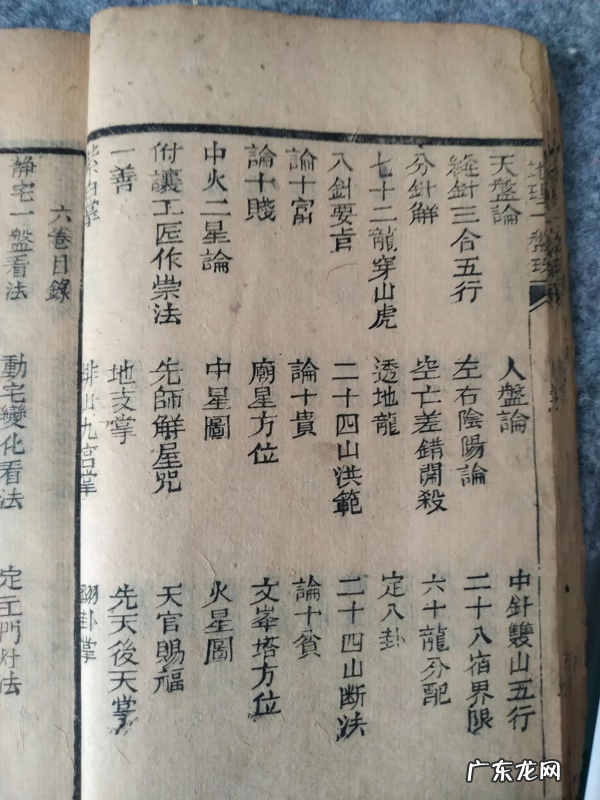 地理一盤珠
天盤論 人盤論 中針雙山五行
縫針三合五行 左右陰陽論 二十八宿界限
分針解 空亡差錯開殺 六十龍分配
七十二龍穿山虎 透地龍 定八卦
八針要旨 二十四山洪範 二十四山断法
論十富 論十貴 論十貧
論十賤 廟星方位 文峯塔方位
中火二星論 中星圖 火星圖
付讓工匠作祟法 先師解屋咒 天官賜福
一善 地支掌 先天後天掌
紫白掌 排山九宮掌 翻卦掌
六卷目錄
静宅一盤看法 動宅變化看法 定王門灶法
广东龙网